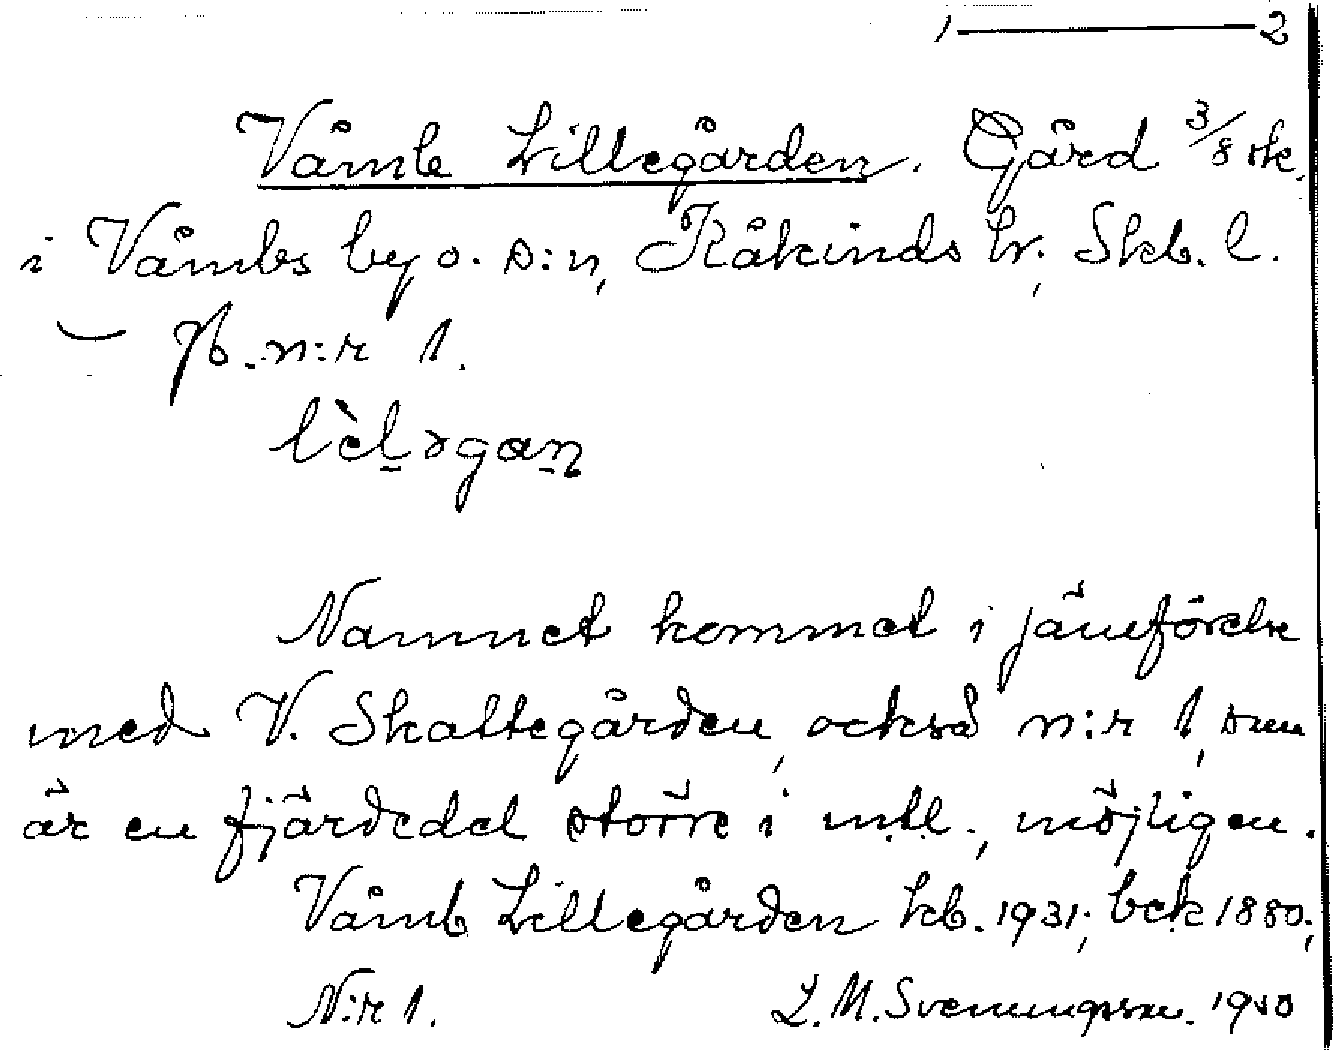 1 — 2
Våmb Lillegården. Gård 3/8 sk.
i Våmbs by o. s:n, Kåkinds hr, Skb. l.
— Jb. n:r 1.
lèl̠əgan̠
Namnet kommet i jämförelse
med V. Skattegården, också n:r 1, som
är en fjärdedel större i mtl., möjligen.
Våmb Lillegården kb. 1931; bek 1880;
N:r 1. L. M. Svenungsson. 1940